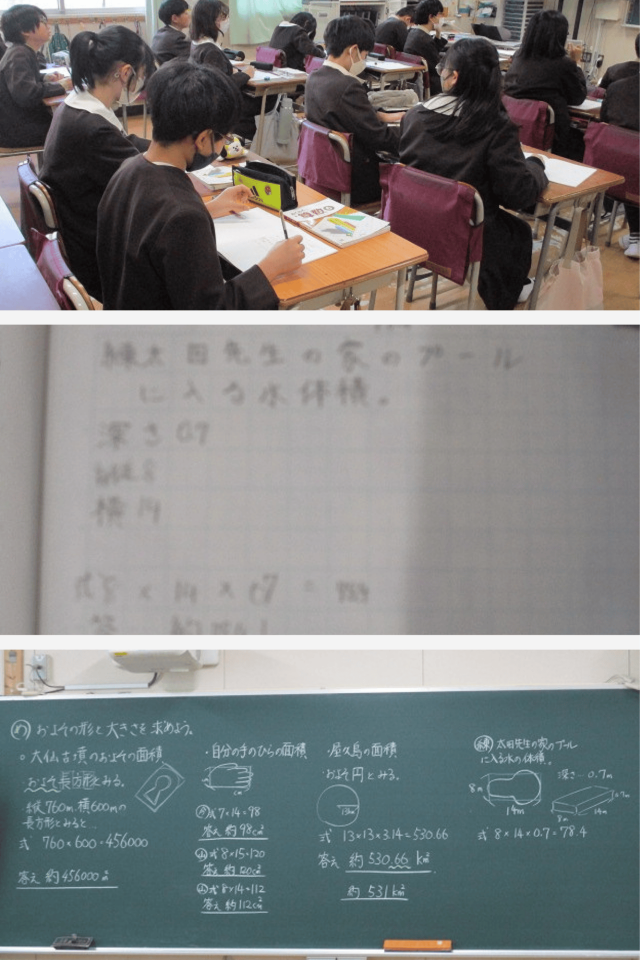 練太田先生の家のプール
に入る水体積。
深さ 0.7
縦8
横14
め およその形と大きさを求めよう。
○大仏古墳のおよその面積
・およそ長方形とみる。
縦760m、横600mの
長方形とみると…
式 760×600=456000
答え 約456000㎡
・自分の手のひらの面積
cm
式 7×14=98
答え 約98c㎡
式 8×15=120
答え 約120c㎡
式 8×14=112
答え 約112c㎡
・屋久島の面積
およそ円とみる。
13km
式 13×13×3.14=530.66
答え 約530.66 k㎡
約531k㎡
練 太田先生の家のプール
に入る水の体積。
深さ…0.7m
8m
14m
0.7m
8m
14m
式 8×14×0.7=78.4